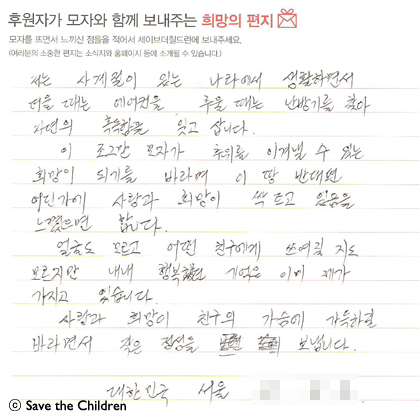 후원자가 모자와 함께 보내주는 희망의 편지
모자를 뜨면서 느끼신 점들을 적어서 세이브더칠드런에 보내주세요.
(여러분의 소중한 편지는 소식지와 홈페이지 등에 소개될 수 있습니다.)
저는 사계절이 있는 나라에서 생활하면서
더울 때는 에어컨을 추울 때는 난방기를 찾아
자연의 혹독함을 잊고 삽니다.
이 조그만 모자가 추위를 이겨낼 수 있는
희망이 되기를 바라며 이 땅 반대편
어딘가에 사랑과 희망이 싹 트고 있음을
느꼈으면 합니다.
얼굴도 모르고 어떤 친구에게 쓰여질 지도
모르지만 내내 행복했던 기억은 이미 제가
가지고 있습니다.
사랑과 희망이 친구의 가슴에 가득하길
바라면서 작은 정성을 보냅니다.
대한민국 서울
ⓒ Save the Children